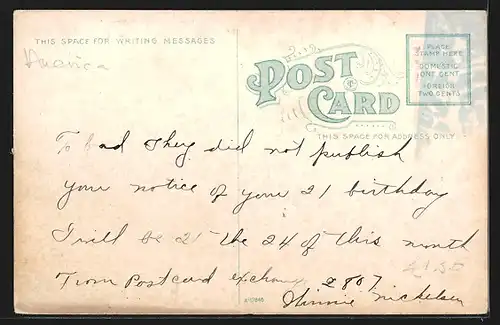 THIS SPACE FOR WRITING MESSAGES
POST CARD
PLACE
STAMP HERE
DOMESTIC
ONE CENT
FOREIGN
TWO CENTS
THIS SPACE FOR ADDRESS ONLY
To bad they did not publish
your notice of your 21 birthday
I will be 21 the 24 of this month
From Postcard exchange 2807
Minnie Nickelsen